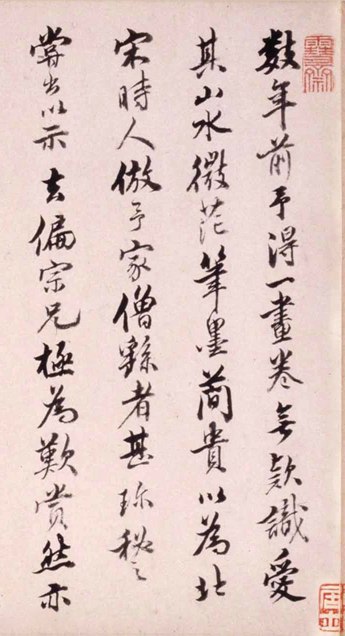 數年前予得一畫卷無款識愛
其山水微茫筆墨簡貴以為北
宋時人倣予家僧繇者甚珍秘之
嘗出以示去偏宗兄極為歎賞然亦